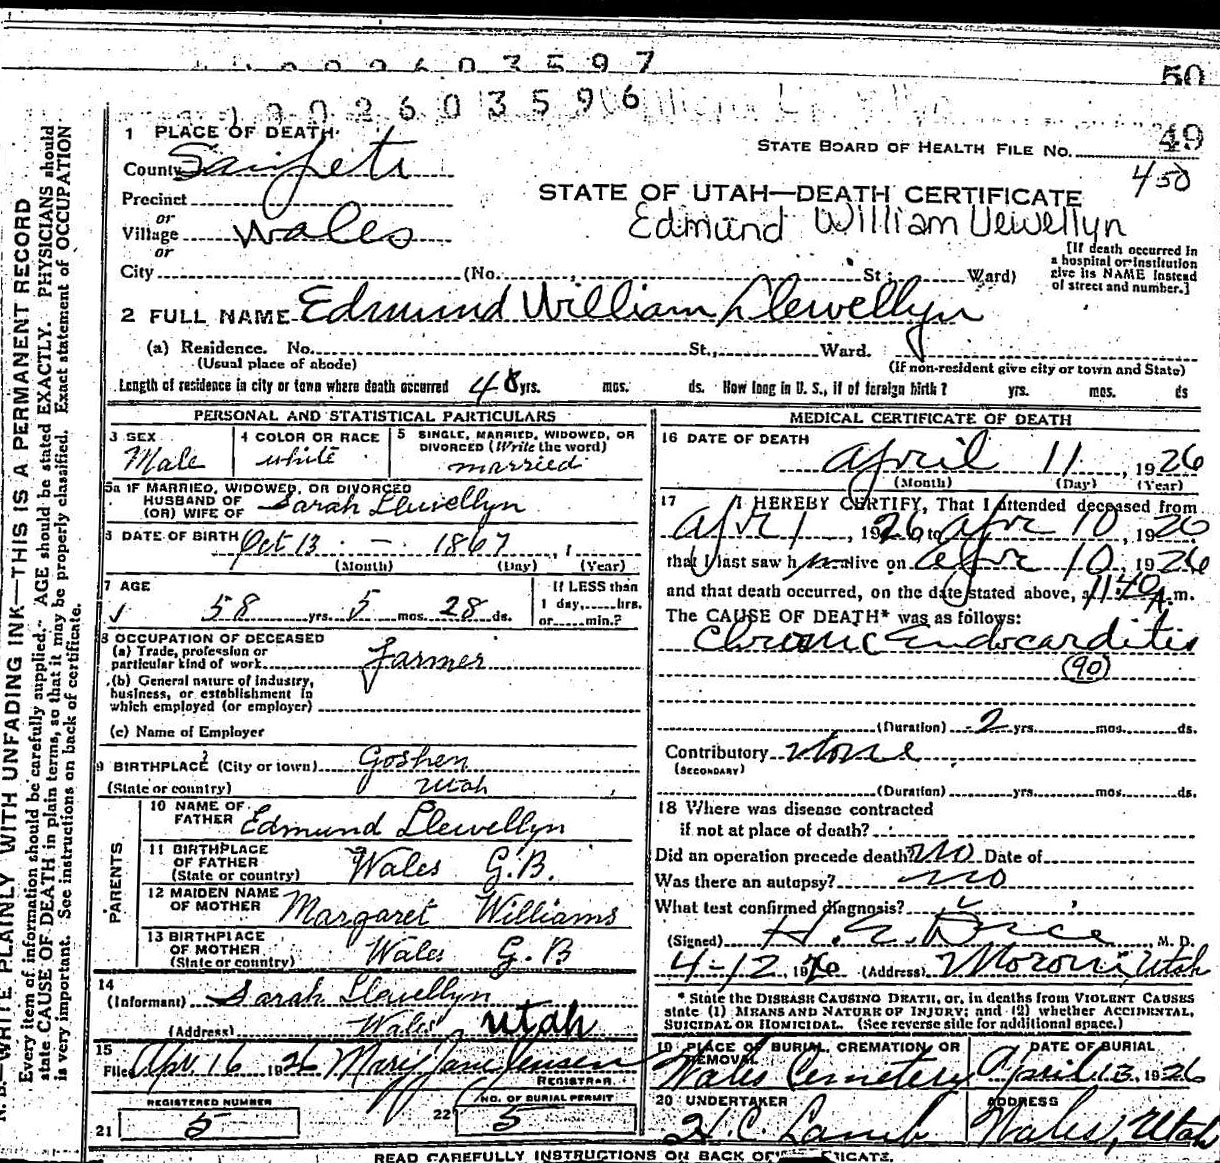 2603597
50
002603596
49
1 PLACE OF DEATH
STATE BOARD OF HEALTH FILE No.
450
County Sanpete
STATE OF UTAH—DEATH CERTIFICATE
Precinct
or
Village Wales
Edmund William Llewellyn
or
[If death occurred in
a hospital or institution
give its NAME instead
of street and number.]
City (No. St; Ward)
2 FULL NAME Edmund William Llewellyn
(a) Residence. No. St., Ward.
(Usual place of abode) (If non-resident give city or town and State)
Length of residence in city or town where death occurred 48 yrs. mos. ds. How long in U. S., if of foreign birth? yrs. mos. ds
PERSONAL AND STATISTICAL PARTICULARS
3 SEX
Male
4 COLOR OR RACE
white
5 SINGLE, MARRIED, WIDOWED, OR
DIVORCED (Write the word)
married
5a IF MARRIED, WIDOWED, OR DIVORCED
HUSBAND OF
(OR) WIFE OF Sarah Llewellyn
6 DATE OF BIRTH Oct 13 - 1867
(Month) (Day) (Year)
7 AGE
58 yrs. 5 mos. 28 ds.
If LESS than
1 day,......hrs.
or......min.?
8 OCCUPATION OF DECEASED
(a) Trade, profession or
particular kind of work Farmer
(b) General nature of industry,
business, or establishment in
which employed (or employer)
(c) Name of Employer
9 BIRTHPLACE (City or town) Goshen
(State or country) Utah
PARENTS
10 NAME OF
FATHER Edmund Llewellyn
11 BIRTHPLACE
OF FATHER
(State or country) Wales G.B.
12 MAIDEN NAME
OF MOTHER Margaret Williams
13 BIRTHPLACE
OF MOTHER
(State or country) Wales G.B
14
(Informant) Sarah Llewellyn
(Address) Wales Utah
15
Filed Apr. 16 1926 Mary Jane Jensen
REGISTRAR
REGISTERED NUMBER
21 5
NO. OF BURIAL PERMIT
22 5
MEDICAL CERTIFICATE OF DEATH
16 DATE OF DEATH
April 11, 1926
(Month) (Day) (Year)
17 I HEREBY CERTIFY, That I attended deceased from
Apr 1, 1926, to Apr 10, 1926
that I last saw h im alive on Apr 10, 1926
and that death occurred, on the date stated above, at 1140 A.m.
The CAUSE OF DEATH* was as follows:
Chronic Endocarditis
(90)
(Duration) 2 yrs. mos. ds.
Contributory None
(SECONDARY)
(Duration) yrs. mos. ds.
18 Where was disease contracted
if not at place of death?
Did an operation precede death? No Date of
Was there an autopsy? No
What test confirmed diagnosis?
(Signed) , M. D.
4-12 1926 (Address) Moroni, Utah
* State the DISEASE CAUSING DEATH, or, in deaths from VIOLENT CAUSES
state (1) MEANS AND NATURE OF INJURY; and (2) whether ACCIDENTAL,
SUICIDAL OR HOMICIDAL. (See reverse side for additional space.)
19 PLACE OF BURIAL, CREMATION OR
REMOVAL
Wales Cemetery
DATE OF BURIAL
April 13, 1926
20 UNDERTAKER
H. C. Lamb
ADDRESS
Wales, Utah
READ CAREFULLY INSTRUCTIONS ON BACK OF CERTIFICATE.
N. B.—WRITE PLAINLY WITH UNFADING INK—THIS IS A PERMANENT RECORD
Every item of information should be carefully supplied. AGE should be stated EXACTLY. PHYSICIANS should
state CAUSE OF DEATH in plain terms, so that it may be properly classified. Exact statement of OCCUPATION
is very important. See instructions on back of certificate.